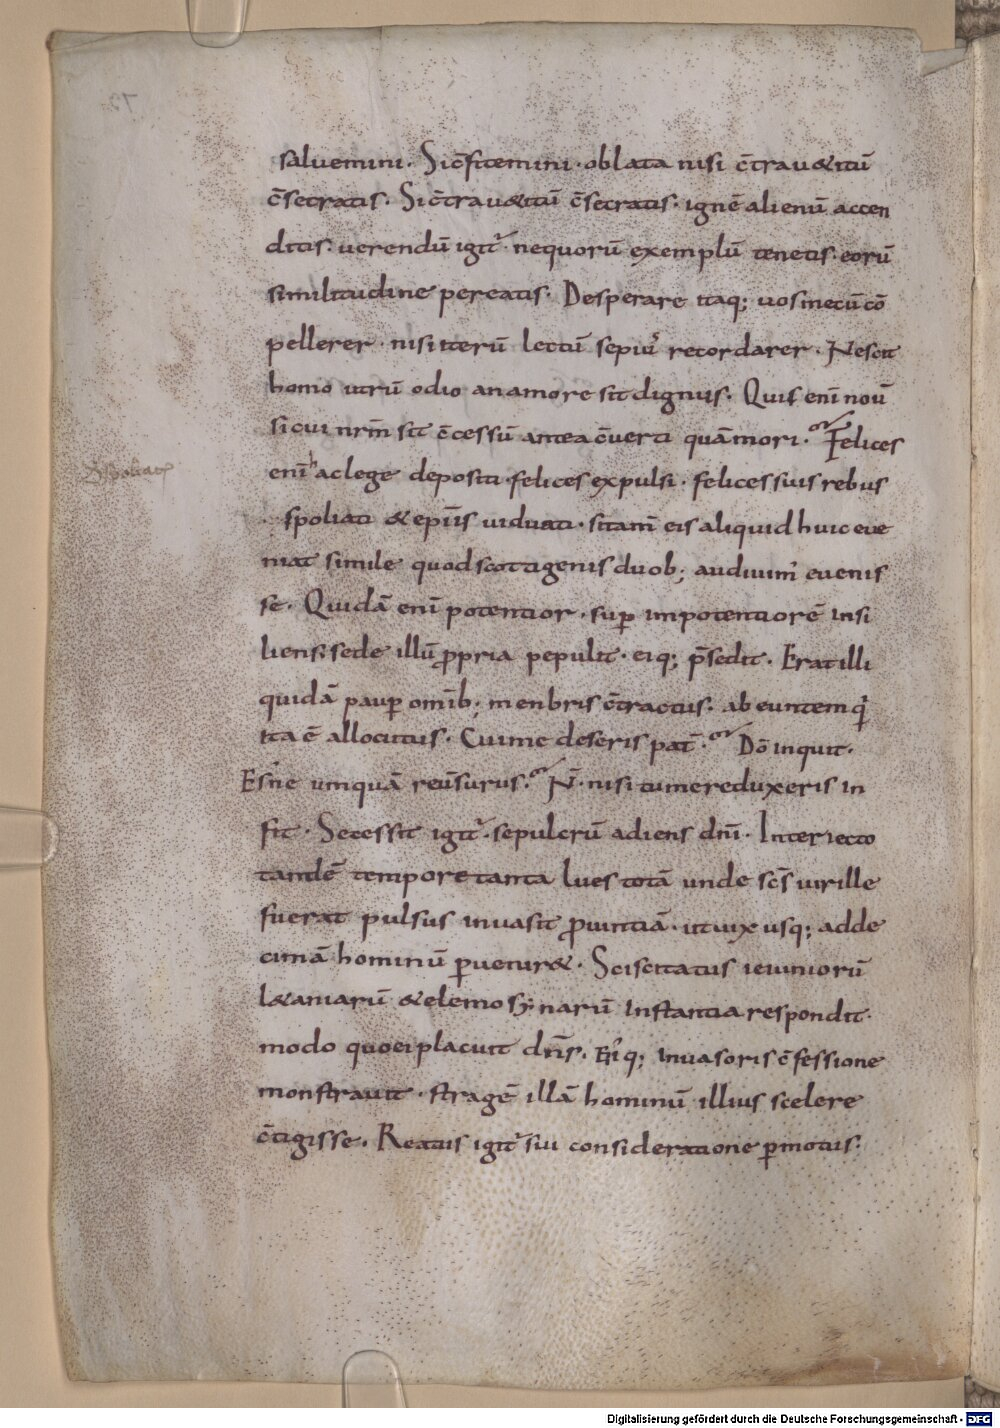 saluemini. Si c̄fitemini. oblata nisi c̄tra u&itū
c̄secratis. Si c̄tra u&itū c̄secratis. ignē alienū accen
ditis. uerendū igit̃. ne quorū exemplū tenetis. eorū
similitudine pereatis. Desperare itaq; uos mecū cō
pellerer. nisi iterū lectū sepiu᷒ recordarer. Nescit
homo utrū odio an amore sit dignus. Quis enī nouit
si cui nr̄m sit c̄cessū antea c̄uerti quā mori. Felices
enī hac lege depositi. felices expulsi. felices suis rebus
spoliati & ep̄iis uiduati. si tam̄ eis aliquid huic eue
niat simile quod scottigenis duob; audiuim᷒ euenis
se. Quidā enī potentior. sup̱ impotentiorē insi
liens. sede illū ꝓpria pepulit. eiq; p̄sedit. Erat illi
quidā paup̱ omīb; menbris c̄tractus. abeuntem q̇
ita ē allocutus. Cui me deseris pat̄. Dō inquit.
Esne umquā reūsurus. N̄. nisi tu me reduxeris in
fit. Secessit igit̃. sepulcrū adiens dn̄i. Interiecto
tandē tempore tanta lues totā unde sc̄s uir ille
fuerat pulsus inuasit ꝓuintiā. ut uix usq; ad de
cimā hominū p̱uenir&. Sciscitatus ieiuniorū
l&aniarū & elemosynarū instantia respondit.
modo quo ei placuit dn̄s. Eiq; inuasoris c̄fessione
monstrauit. stragē illā hominū illius scelere
c̄tigisse. Reatus igit̃ sui consideratione p̱motus.